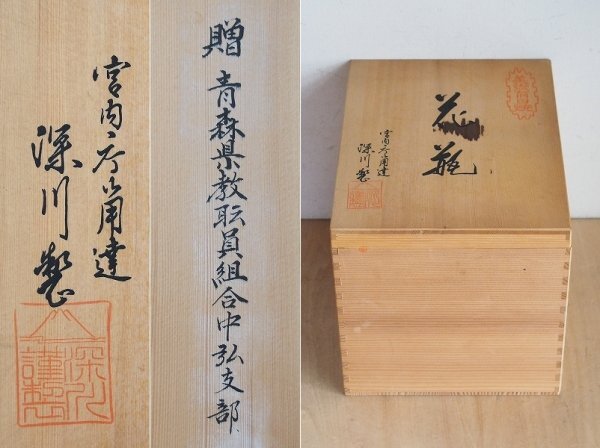 宮内庁御用達
深川製
贈 青森県教職員組合中弘支部
花瓶
宮内庁御用達
深川製